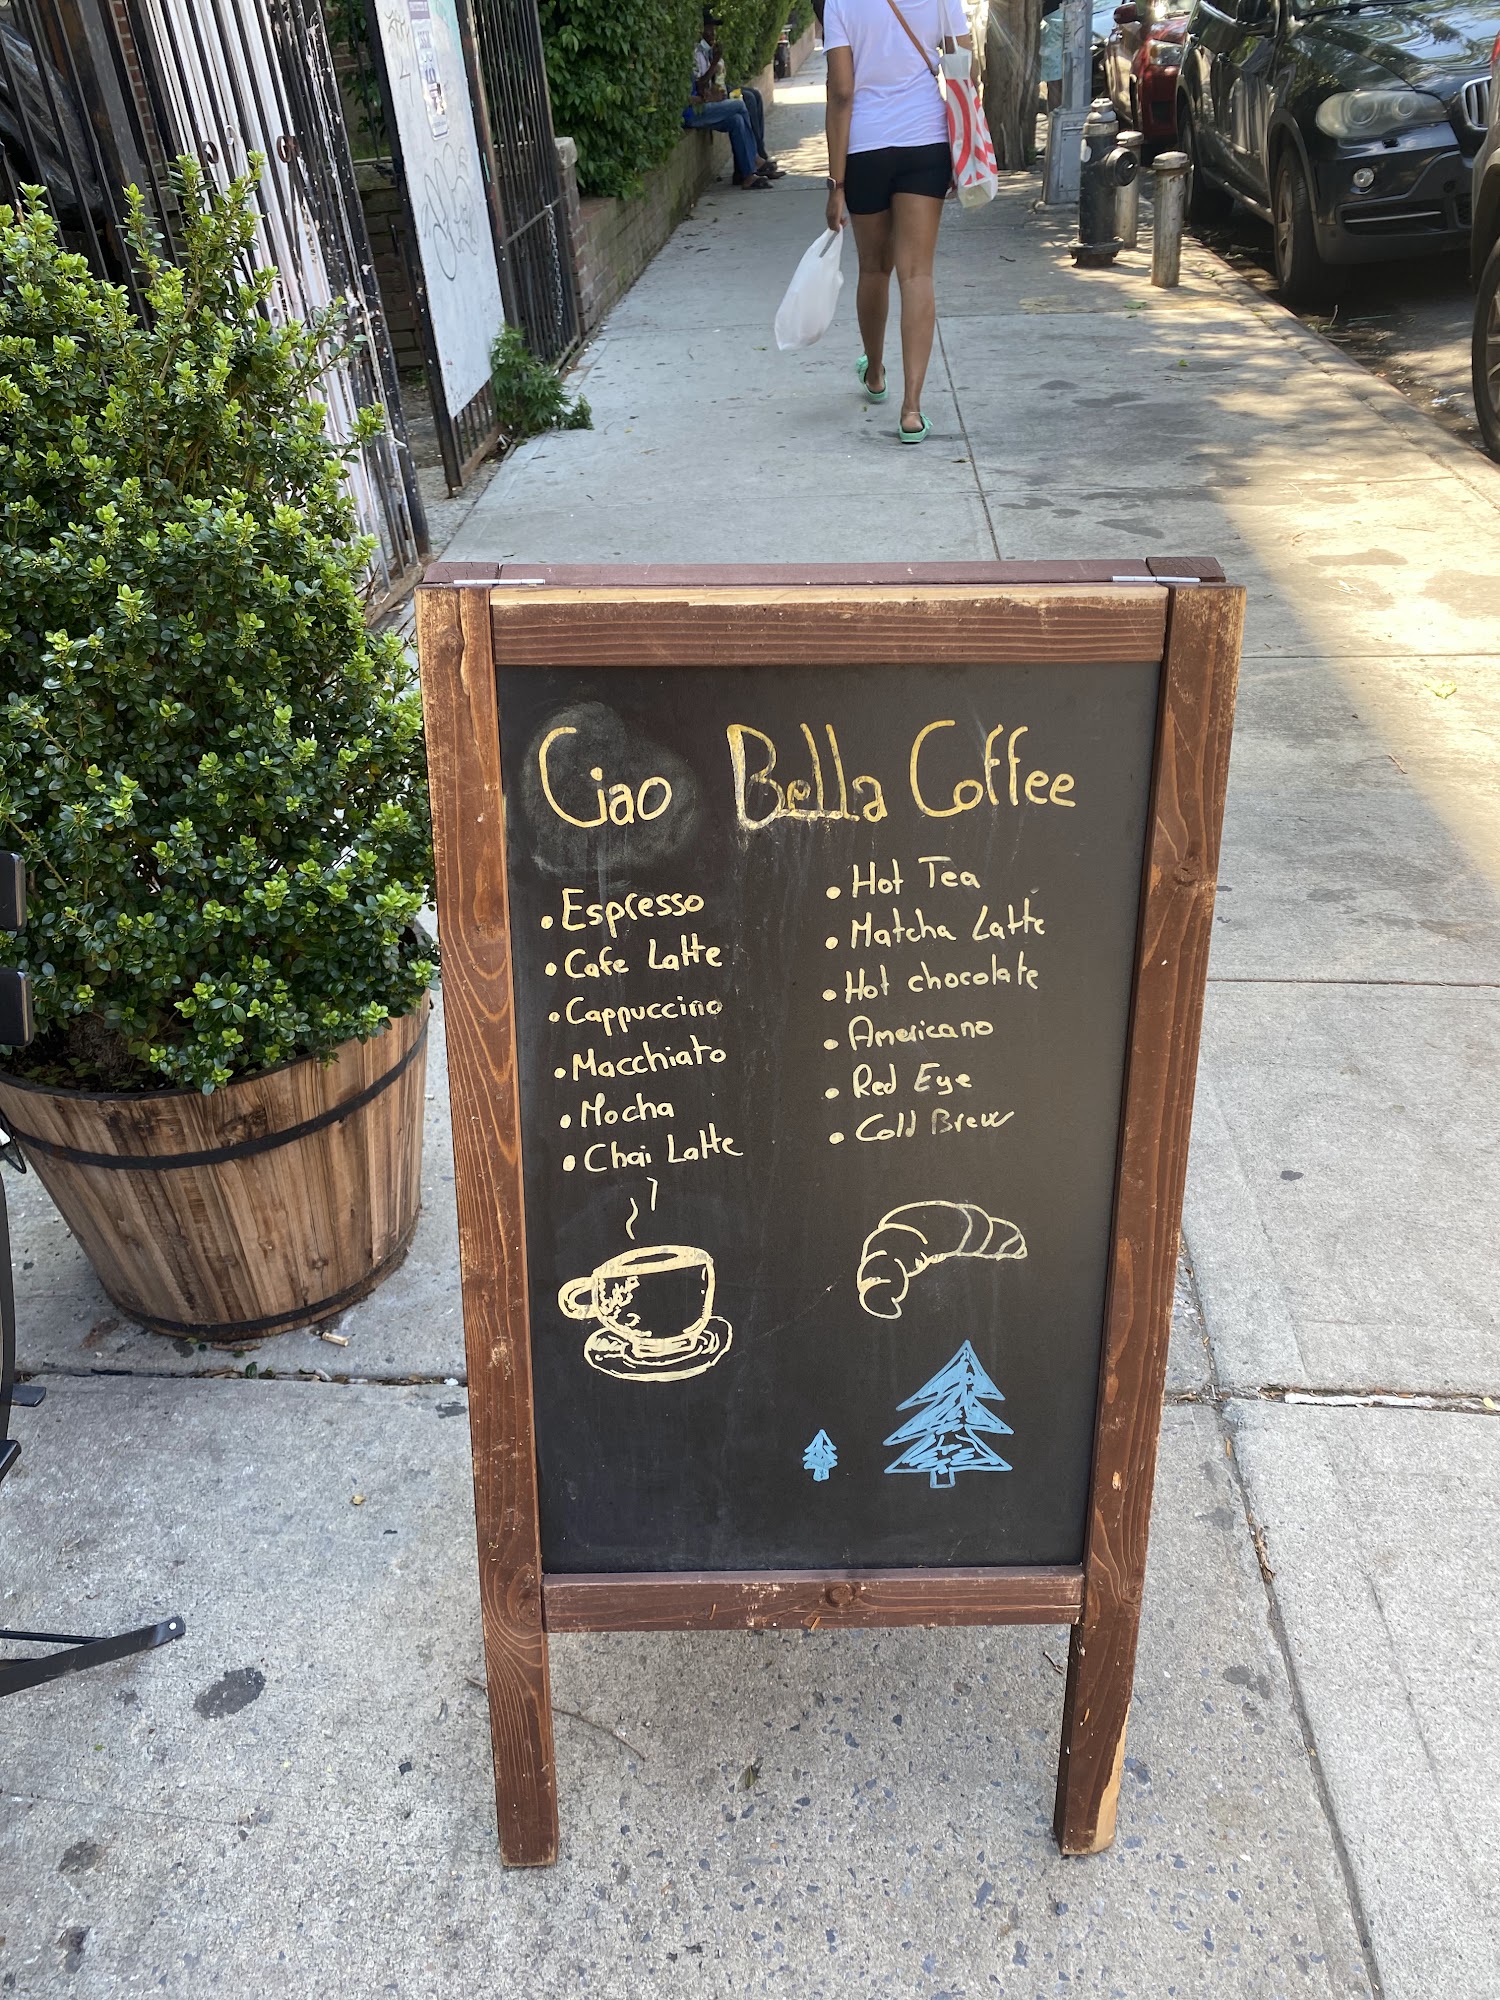 Ciao Bella Coffee
• Espresso
• Cafe Latte
• Cappuccino
• Macchiato
• Mocha
• Chai Latte
• Hot Tea
• Matcha Latte
• Hot chocolate
• Americano
• Red Eye
• Cold Brew